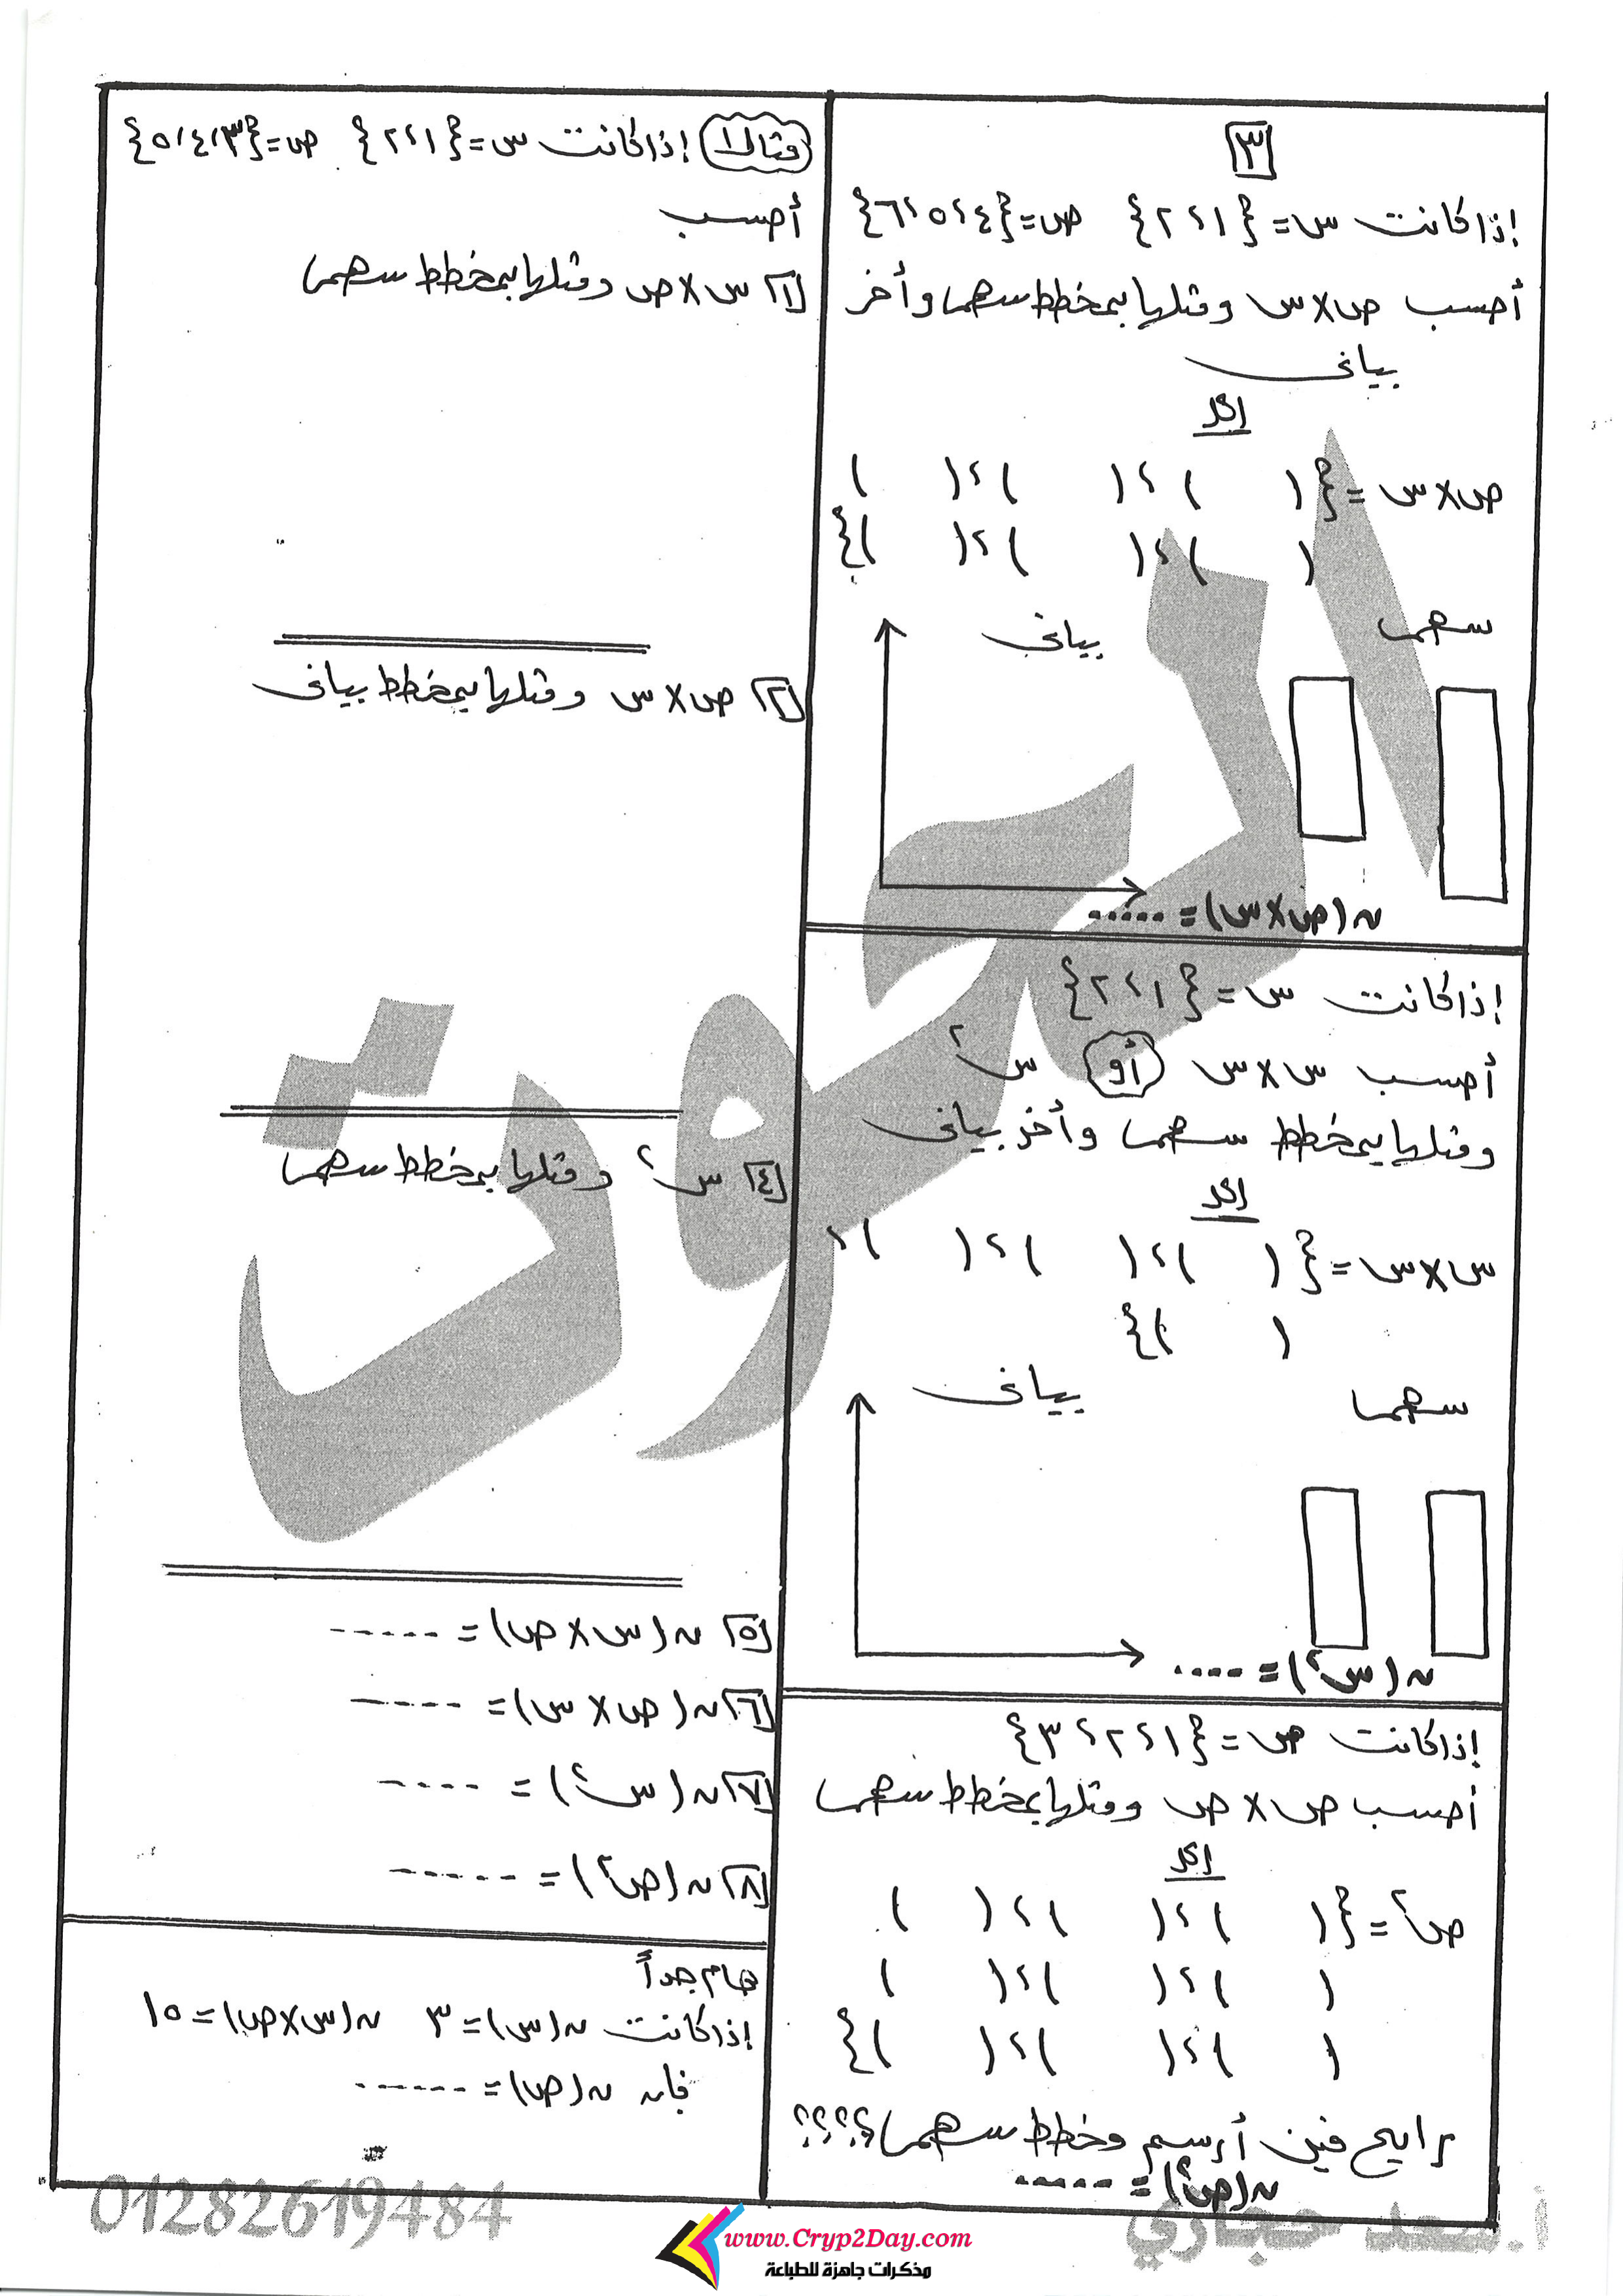 ٣
إذا كانت س = {١ ، ٢} ص = {٤ ، ٥ ، ٦}
أحسب ص × س ومثلها بمخطط سهمى وأخر
بيانى
الحل
ص × س = {( ) ، ( ) ، ( ) ، ( )
( ) ، ( ) ، ( )}
سهمى
بيانى
ن (ص × س) = .....
إذا كانت س = {١ ، ٢}
أحسب س × س أو س٢
ومثلها بمخطط سهمى وأخر بيانى
الحل
س × س = {( ) ، ( ) ، ( ) ،
( )}
سهمى
بيانى
ن (س٢) = ....
إذا كانت ص = {١ ، ٢ ، ٣}
أحسب ص × ص ومثلها بمخطط سهمى
الحل
ص٢ = {( ) ، ( ) ، ( )
( ) ، ( ) ، ( )
( ) ، ( ) ، ( )}
رايح فين أرسم مخطط سهمى ؟؟؟؟
ن (ص٢) = .....
مثال ١ إذا كانت س = {١ ، ٢} ص = {٣ ، ٤ ، ٥}
أحسب
[١] س × ص ومثلها بمخطط سهمى
[٢] ص × س ومثلها بمخطط بيانى
[٤] س٢ ومثلها بمخطط سهمى
[٥] ن (س × ص) = -----
[٦] ن (ص × س) = -----
[٧] ن (س٢) = ----
[٨] ن (ص٢) = ------
هام جداً
إذا كانت ن (س) = ٣ ن (س × ص) = ١٥
فإن ن (ص) = ------
أ. سعد حجازي
01282619484
www.Cryp2Day.com
مذكرات جاهزة للطباعة